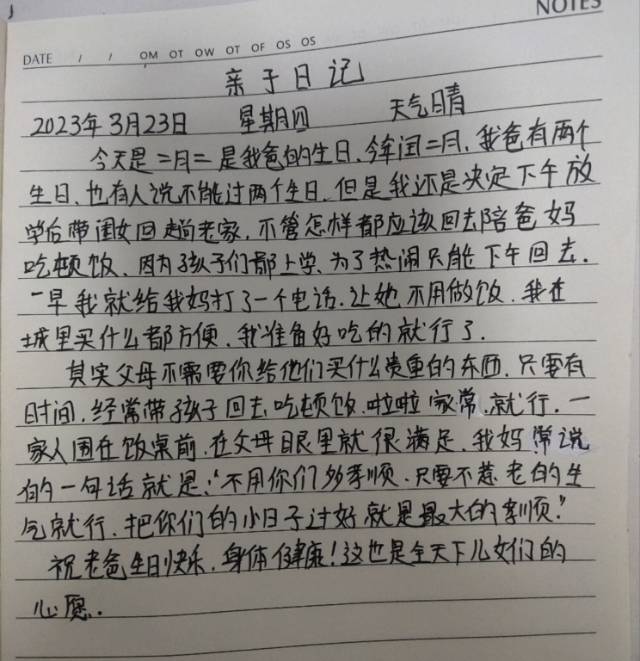 NOTES
DATE / / OM OT OW OT OF OS OS
亲子日记
2023年3月23日 星期四 天气晴
今天是二月二是我爸的生日、今年闰二月、我爸有两个
生日、也有人说不能过两个生日、但是我还是决定下午放
学后带闺女回趟老家、不管怎样都应该回去陪爸妈
吃顿饭、因为孩子们都上学、为了热闹只能下午回去.
一早我就给我妈打了一个电话、让她不用做饭、我在
城里买什么都方便、我准备好吃的就行了.
其实父母不需要你给他们买什么贵重的东西、只要有
时间、经常带孩子回去吃顿饭、啦啦家常、就行、一
家人围在饭桌前、在父母眼里就很满足、我妈常说
的一句话就是:“不用你们多孝顺、只要不惹老的生
气就行、把你们的小日子过好就是最大的孝顺.”
祝老爸生日快乐、身体健康!这也是全天下儿女们的
心愿.